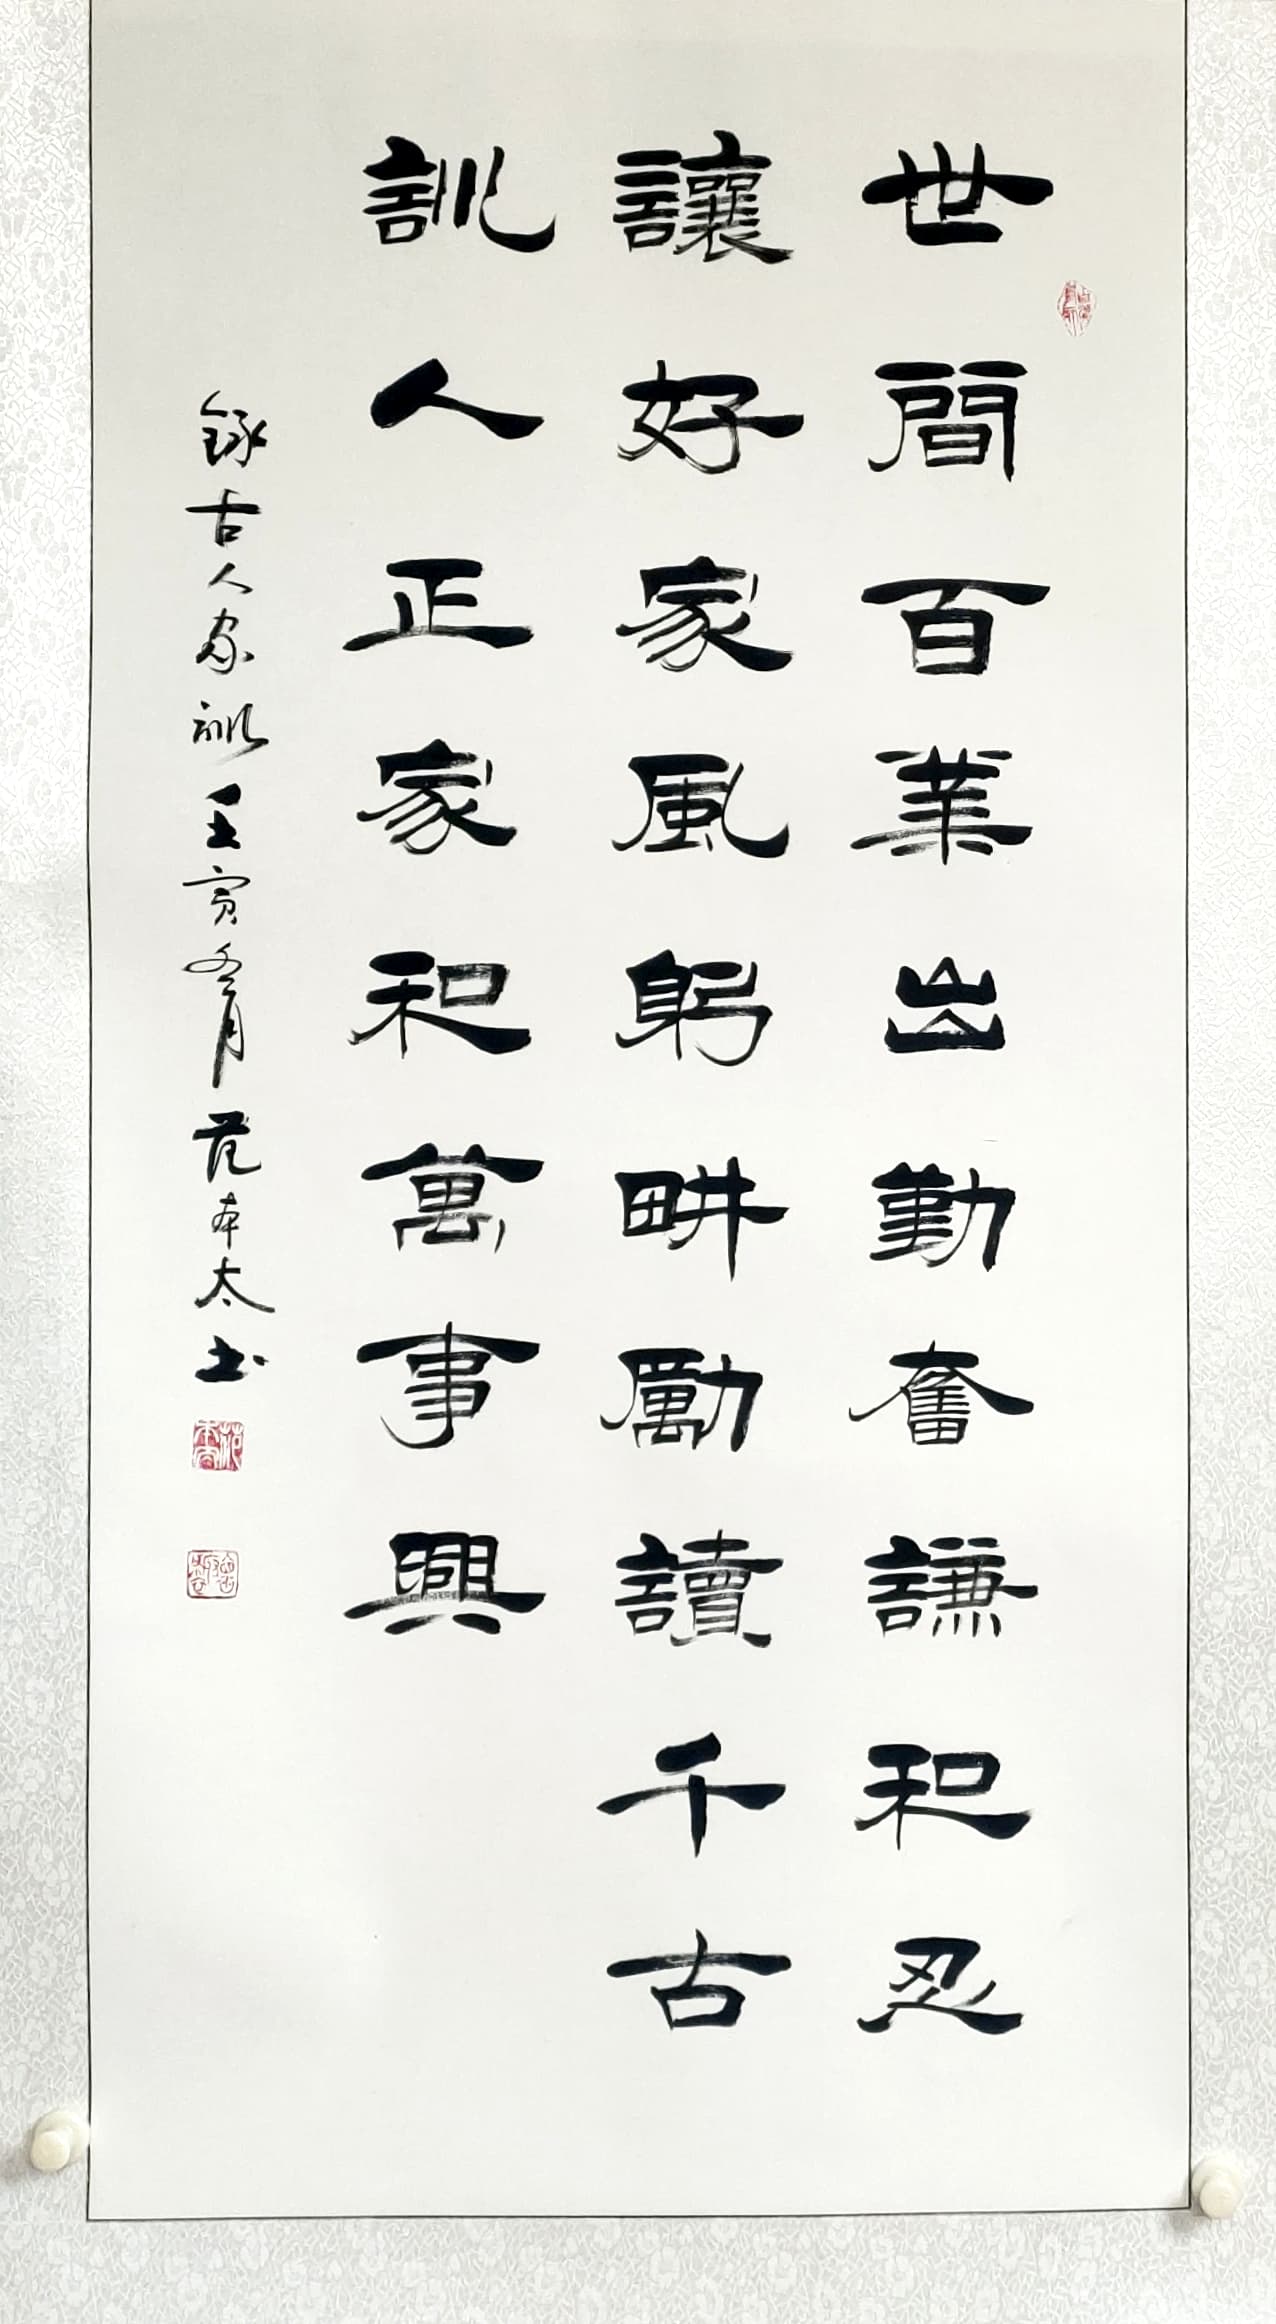 世間百業出勤奮謙和忍
讓好家風躬畊勵讀千古
訓人正家和萬事興
録古人家訓壬寅冬月范本太书